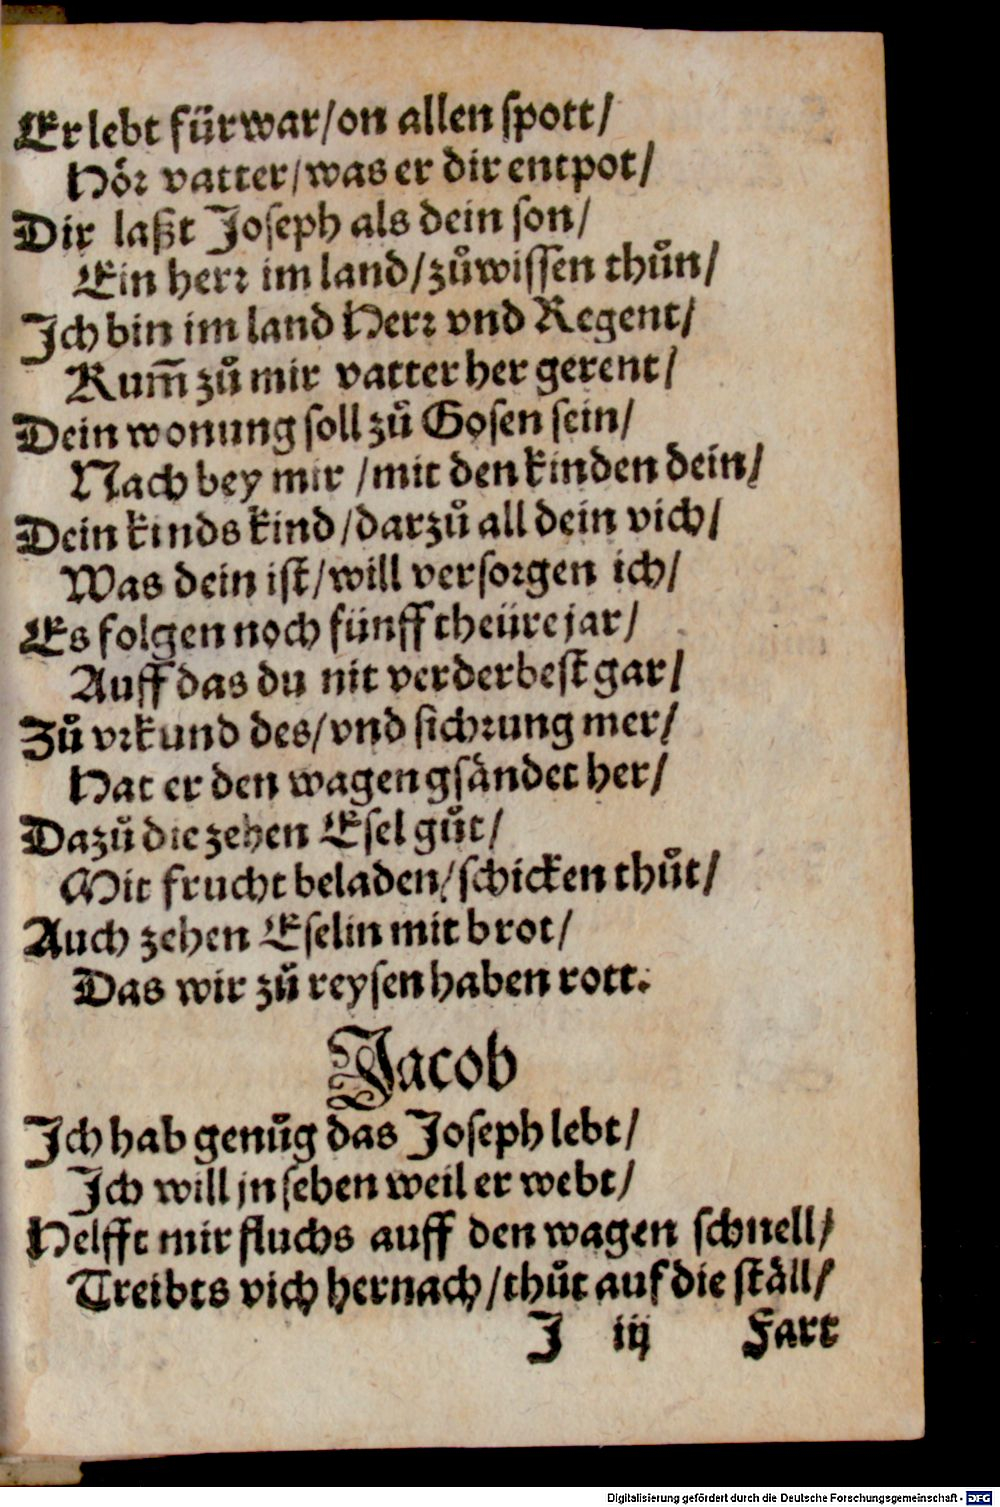 Er lebt fürwar/on allen spott/
Hör vatter/was er dir entpot/
Dir laßt Joseph als dein son/
Ein herr im land/zůwissen thůn/
Ich bin im land Herr vnd Regent/
Kum̃ zů mir vatter her gerent/
Dein wonung soll zů Gosen sein/
Nach bey mir /mit den kinden dein/
Dein kinds kind/darzů all dein vich/
Was dein ist/will versorgen ich/
Es folgen noch fünff theüre jar/
Auff das du nit verderbest gar/
Zů vrkund des/vnd sichrung mer/
Hat er den wagen gsändet her/
Dazů die zehen Esel gůt/
Mit frucht beladen/schicken thůt/
Auch zehen Eselin mit brot/
Das wir zů reysen haben rott.
Jacob
Ich hab genůg das Joseph lebt/
Ich will jn sehen weil er webt/
Helfft mir fluchs auff den wagen schnell/
Treibts vich hernach/thůt auf die ställ/
J iij Fart
Digitalisierung gefördert durch die Deutsche Forschungsgemeinschaft - DFG